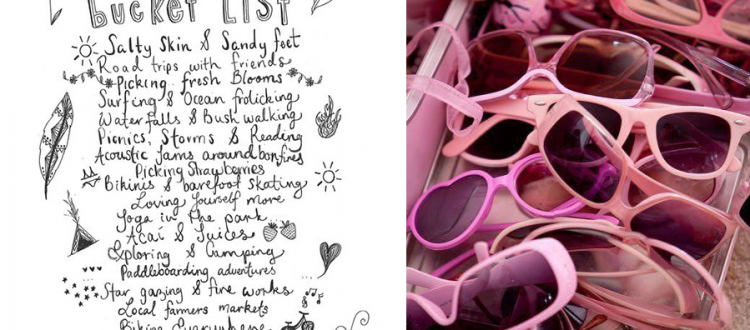 BUCKET LIST
Salty Skin & Sandy feet
Road trips with friends
Picking fresh Blooms
Surfing & Ocean frolicking
Waterfalls & Bush walking
Picnics, Storms & Reading
Acoustic jams around bonfires
Picking Strawberries
Bikinis & barefoot Skating
Loving yourself more
Yoga in the park
Acaí & Juices
Exploring & Camping
Paddleboarding adventures
Star gazing & fire works
Local farmers markets
Biking Everywhere